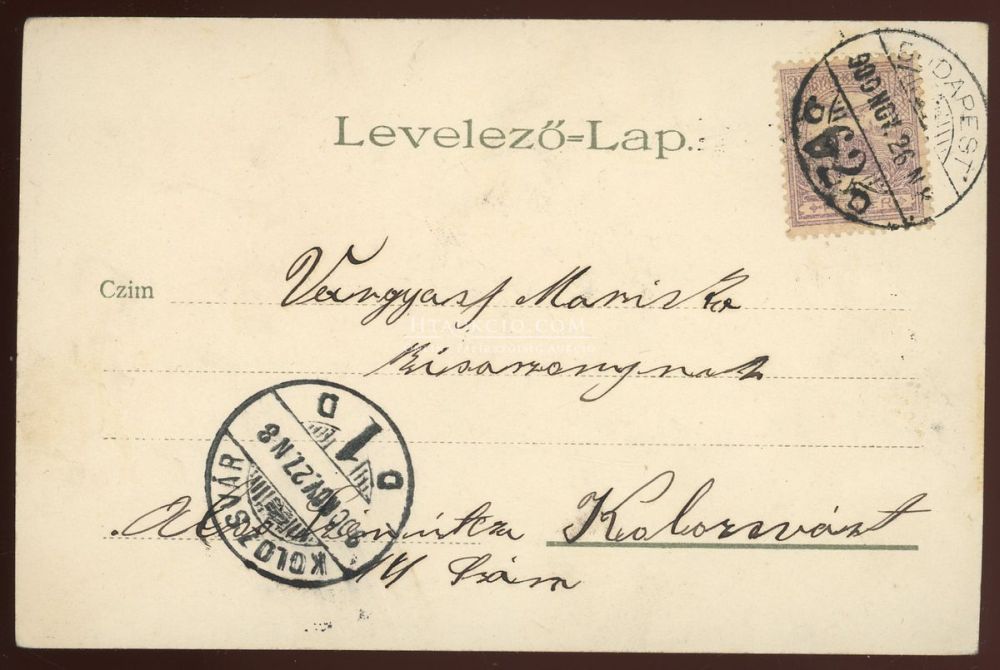 Levelező=Lap.
BUDAPEST
900 NOV. 26 N 8
62
Czim
Vargyasf Mariska
HTAUKCIO.COM
kisasszonynak
KOLOZSVÁR
900 NOV. 27. N 8
D 1 D
Kolozsvárt
14 szám